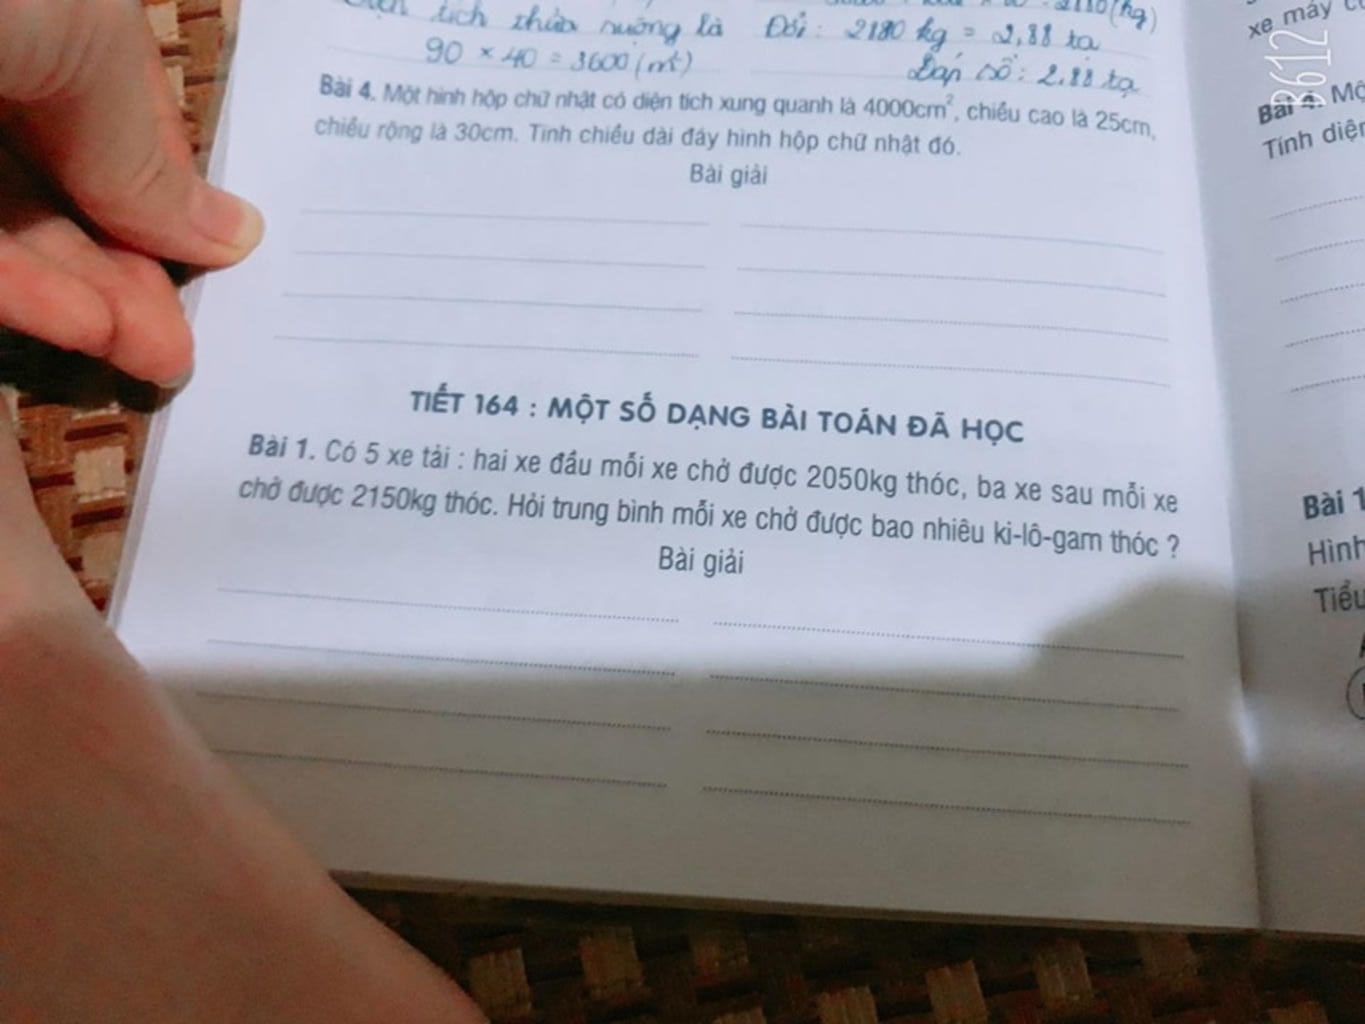 tích thửa ruộng là
90 × 40 = 3600 (m²)
(kg)
Đổi : 2180 kg = 2,88 tạ
Đáp số : 2,88 tạ
Bài 4. Một hình hộp chữ nhật có diện tích xung quanh là 4000cm², chiều cao là 25cm,
chiều rộng là 30cm. Tính chiều dài đáy hình hộp chữ nhật đó.
Bài giải
TIẾT 164 : MỘT SỐ DẠNG BÀI TOÁN ĐÃ HỌC
Bài 1. Có 5 xe tải : hai xe đầu mỗi xe chở được 2050kg thóc, ba xe sau mỗi xe
chở được 2150kg thóc. Hỏi trung bình mỗi xe chở được bao nhiêu ki-lô-gam thóc ?
Bài giải
xe máy
Bài 4. Mộ
Tính diện
Bài 1
Hình
Tiểu
B612